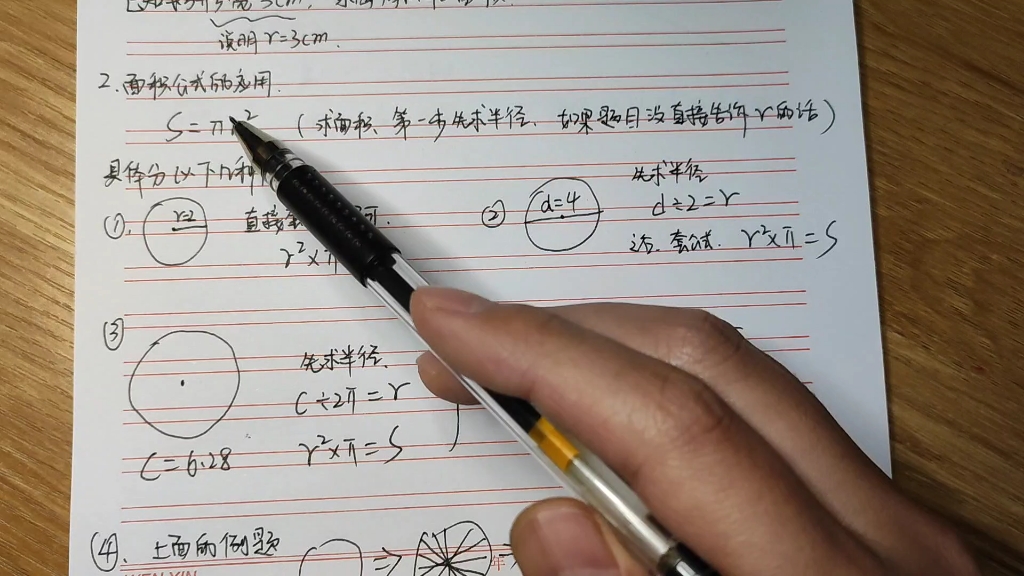 说明 r=3cm.
2.面积公式的应用.
S=πr² (求面积、第一步先求半径、如果题目没直接告诉r的话)
具体分以下几种
①. r=2 直接
r²×π
② d=4 先求半径
d÷2=r
r²×π=S
③
先求半径.
C÷2π=r
C=6.28 r²×π=S
④、上面的例题 =>